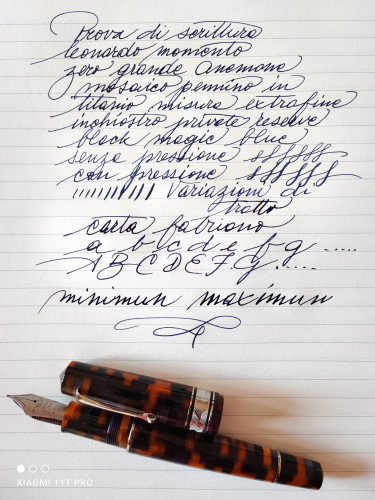 Prova di scrittura
leonardo momento
zero grande Anemone
mosaico pennino in
titanio misura extrafine
inchiostro private reserve
black magic blue
senza pressione sffffff
con pressione sffffff
Variazioni di
tratto
carta fabriano
a b c d e f g .....
A B C D E F G .....
minimun maximun
XIAOMI 11T PRO